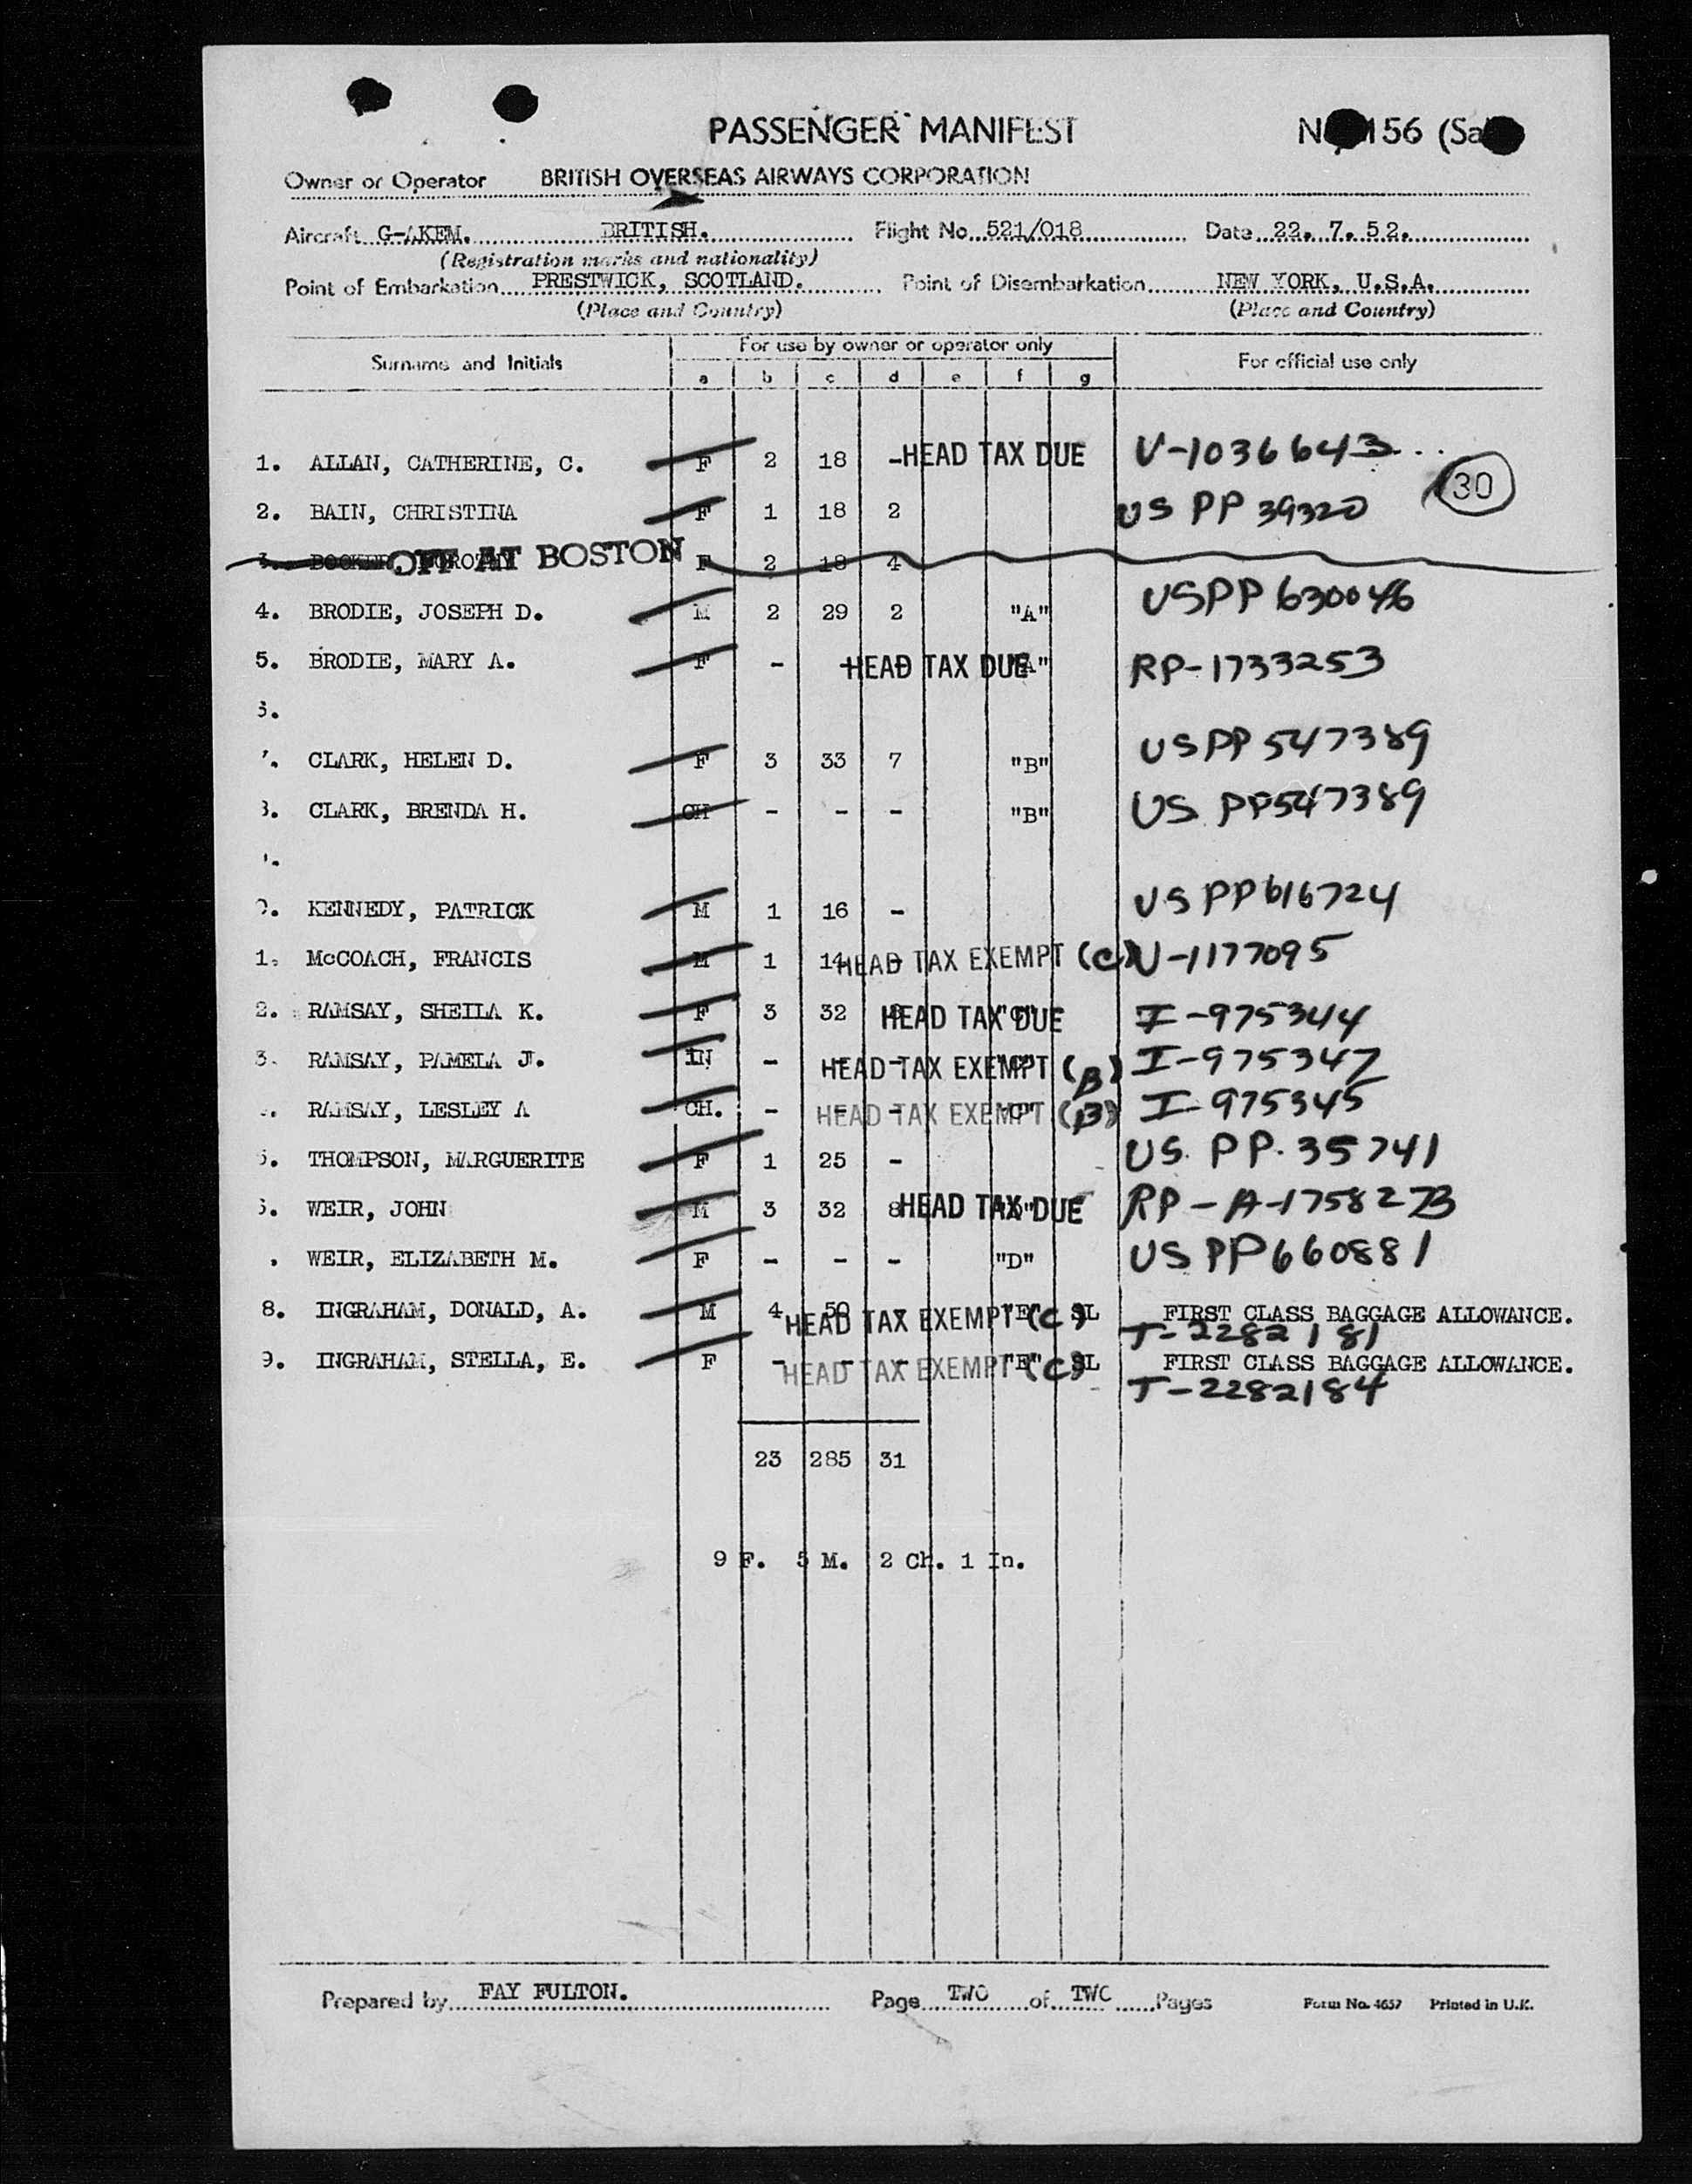 PASSENGER MANIFEST 156
Owner or Operator BRITISH OVERSEAS AIRWAYS CORPORATION
Aircraft G-AKEM. BRITISH. Flight No. 521/018 Date 22. 7. 52.
(Registration marks and nationality)
Point of Embarkation PRESTWICK, SCOTLAND. Point of Disembarkation NEW YORK, U.S.A.
(Place and Country) (Place and Country)
Surname and Initials For use by owner or operator only For official use only
a b c d e f g
1. ALLAN, CATHERINE, C. F 2 18 - HEAD TAX DUE V-1036643
30
2. BAIN, CHRISTINA F 1 18 2 US PP 39320
3. OFF AT BOSTON F 2 18 4
4. BRODIE, JOSEPH D. M 2 29 2 "A" USPP 630046
5. BRODIE, MARY A. F - - - HEAD TAX DUE "A" RP-1733253
6.
7. CLARK, HELEN D. F 3 33 7 "B" US PP 547389
8. CLARK, BRENDA H. CH - - - "B" US PP547389
KENNEDY, PATRICK M 1 16 - US PP 616724
1. McCOACH, FRANCIS M 1 14 - HEAD TAX EXEMPT (C) V-1177095
2. RAMSAY, SHEILA K. F 3 32 HEAD TAX DUE I-975344
3. RAMSAY, PAMELA J. IN - - - HEAD TAX EXEMPT (B) I-975347
RAMSAY, LESLEY A CH. - - - HEAD TAX EXEMPT (B) I-975345
5. THOMPSON, MARGUERITE F 1 25 - US. PP. 35741
6. WEIR, JOHN M 3 32 8 HEAD TAX DUE RP-A-1758273
WEIR, ELIZABETH M. F - - - "D" US PP 660881
8. INGRAHAM, DONALD, A. M 4 50 - HEAD TAX EXEMPT (C) "E" SL FIRST CLASS BAGGAGE ALLOWANCE.
T-2282181
9. INGRAHAM, STELLA, E. F - - - HEAD TAX EXEMPT (C) "E" SL FIRST CLASS BAGGAGE ALLOWANCE.
T-2282184
23 285 31
9 F. 5 M. 2 Ch. 1 In.
Prepared by FAY FULTON. Page TWO of TWO Pages Form No. 4657 Printed in U.K.